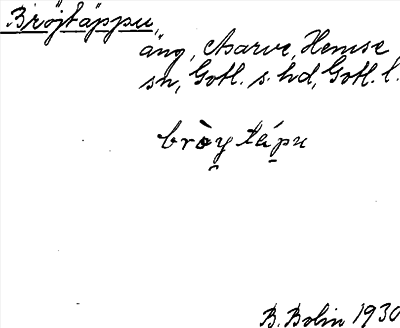 Bröjtäppu,
äng, Asarve, Hemse
sn, Gotl. s. hd, Gotl. l.
bròy tápu
B. Bolin 1930